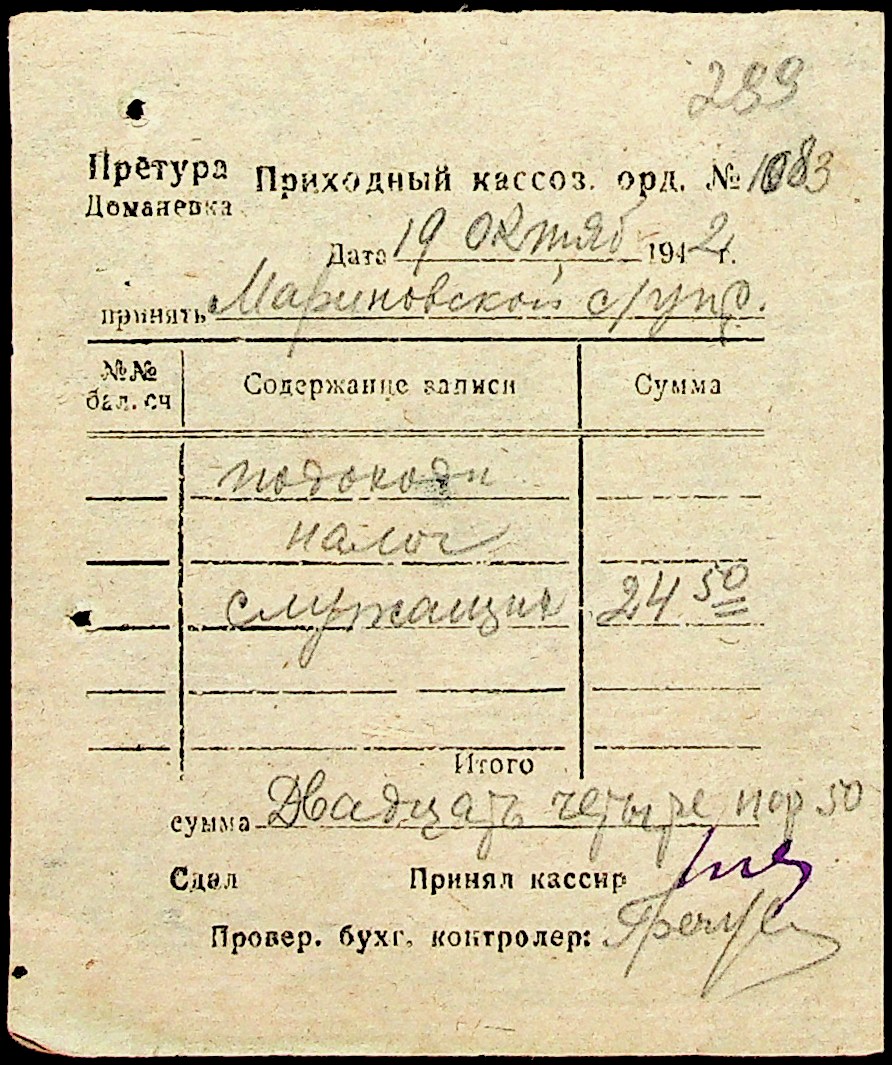 289
Претура Приходный кассов. орд. № 1083
Доманевка
Дата 19 октяб 1942 г.
принять Мариновской с/упр.
№№ бал. сч Содержание записи Сумма
подоходн
налог
служащих 24 50
Итого
сумма Двадцать четыре 50
Сдал Принял кассир
Провер. бухг. контролер: